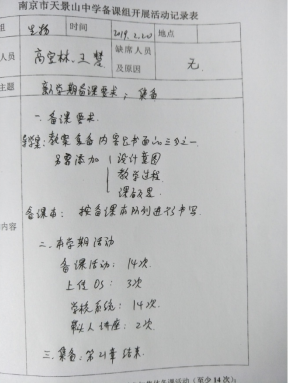 南京市天景山中学备课组开展活动记录表
组 生物 时间 2019.2.20 地点
人员 高宝林、王慧 缺席人员及原因 无
主题 新学期备课要求，集备
一、备课要求
教案复备内容占书面的三分之一
另需添加 设计意图
教学过程
课后反思
备课本：按备课本的列进行书写
内容
二、本学期活动
备课活动：14次
上传QS：3次
学校系统：14次
第一人讲座：2次
三、集备：第21章 结束
备课活动（至少14次）；